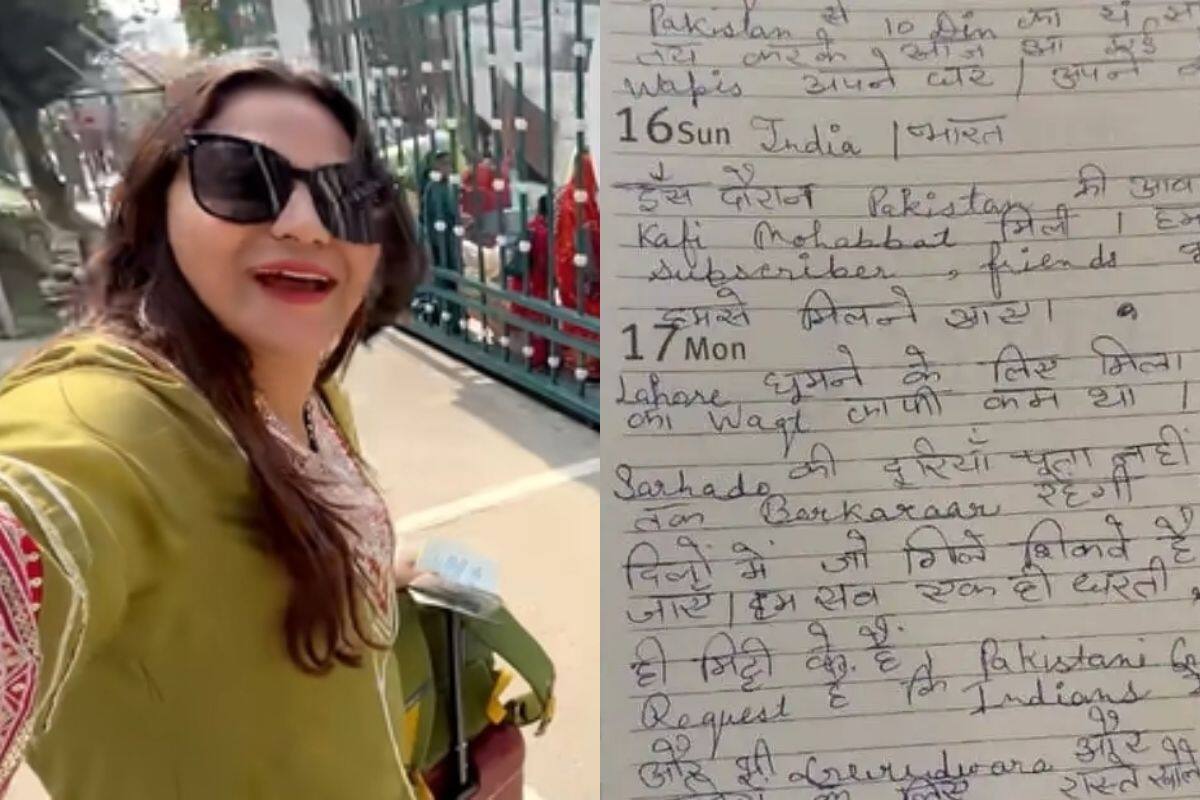 Pakistan से 10 Din का ये स
तय करके आज आ गई
Wapis अपने घर | अपने
16 Sun India | भारत
इस दौरान Pakistan की आवा
Kafi Mohabbat मिली । हम
subscriber, friends
हमसे मिलने आए।
17 Mon
Lahore घूमने के लिए मिला
का Waqt काफी कम था ।
Sarhado की दूरियाँ पता नहीं
तक Barkaraar रहेगी
दिलों में जो गिले शिकवे है
जाएं | हम सब एक ही धरती,
ही मिट्टी के है। Pakistani
Request है कि Indians
और भी Gurudwara और
के लिए रास्ते खोले